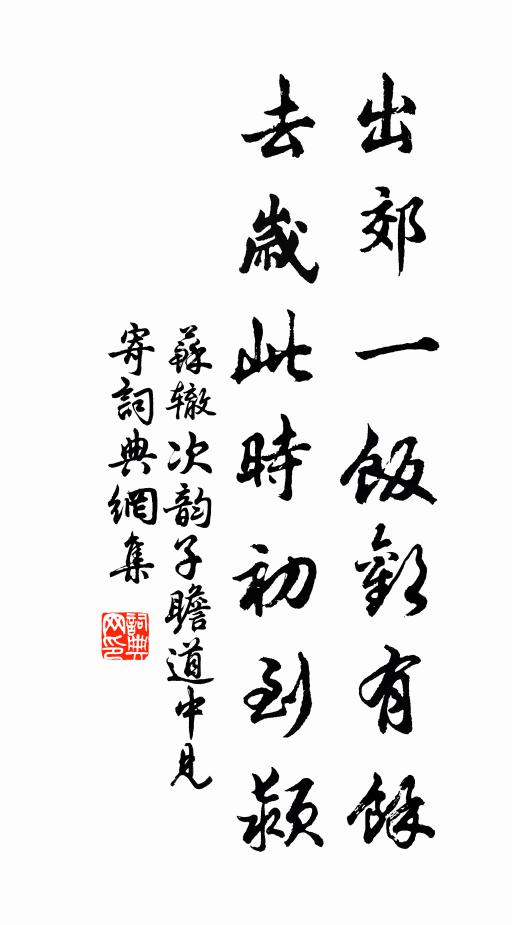 出郊一飯歡有餘
去歲此時初到潁
蘇辙次韵子瞻道中見
寄詞典網集
詞典
网印